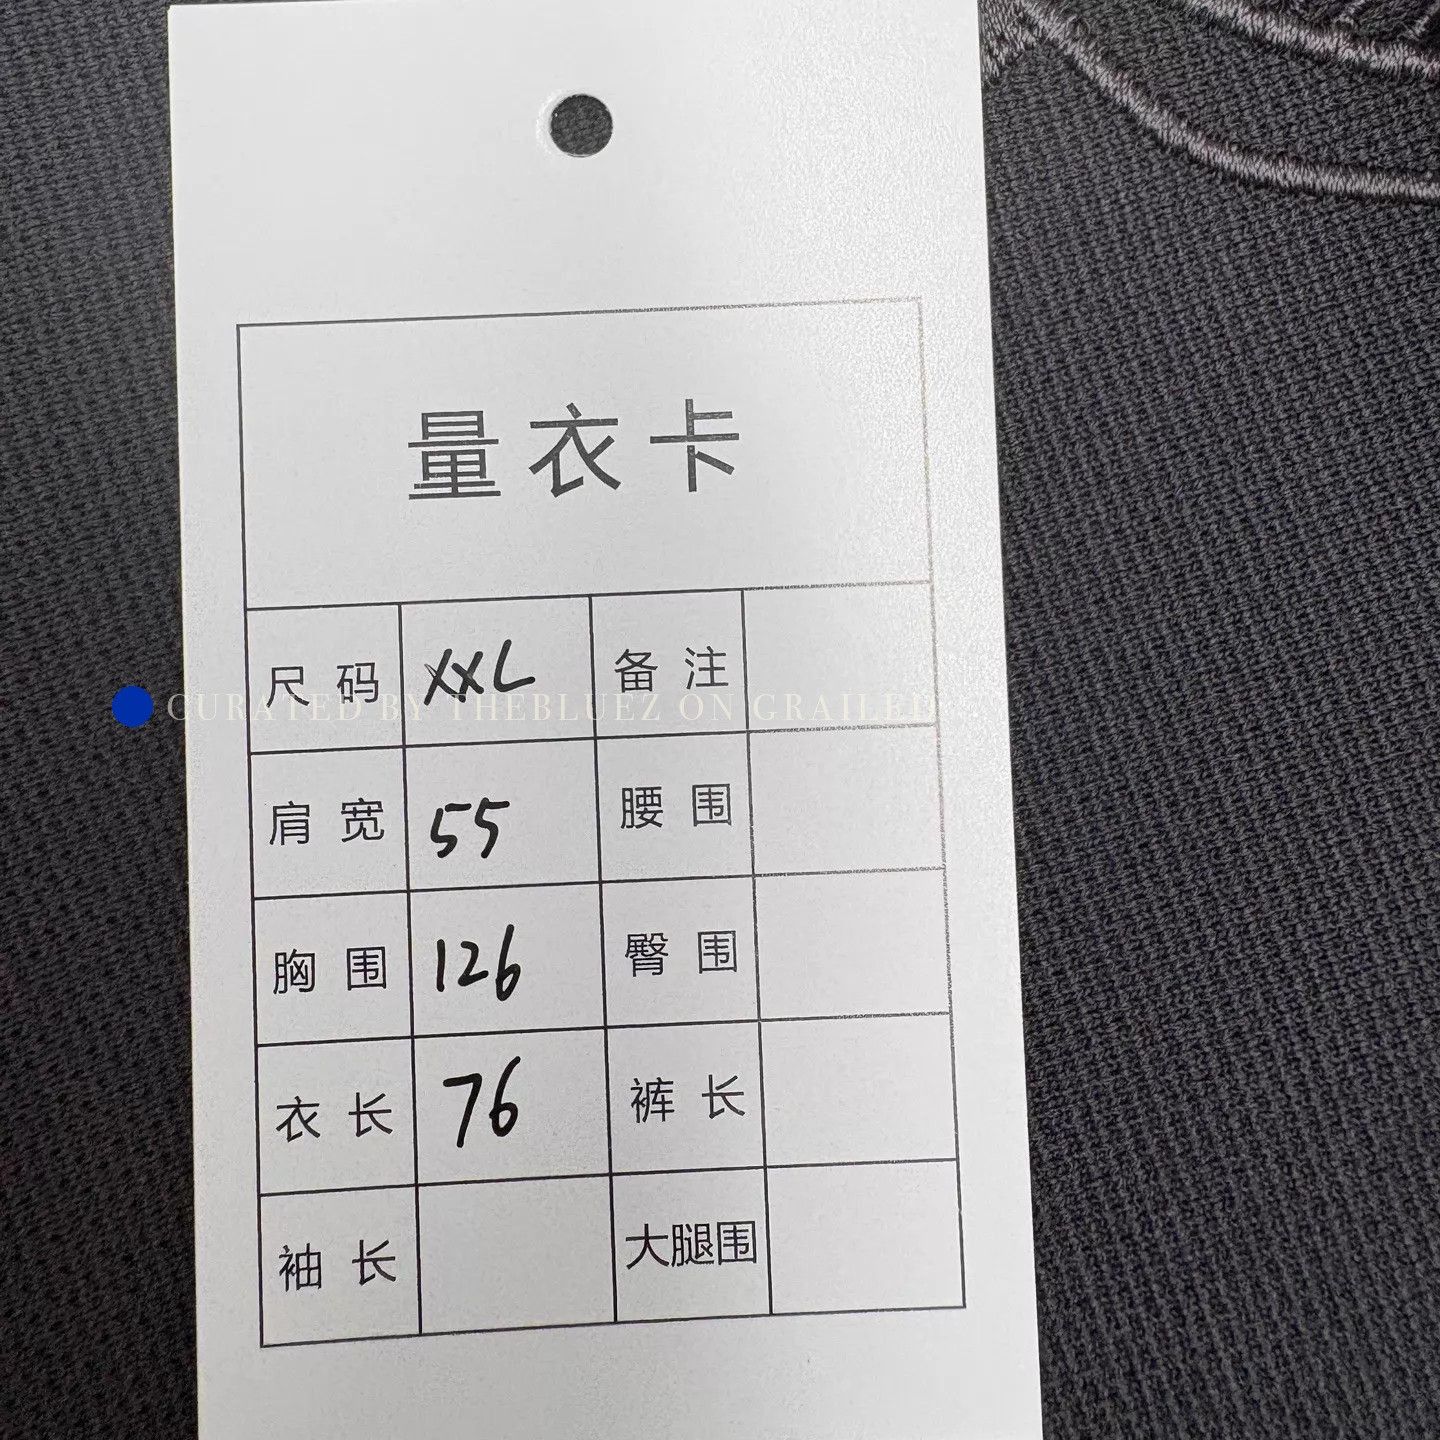 量衣卡
尺码 XXL 备注
CURATED BY THEBLUEZ ON GRAILED
肩宽 55 腰围
胸围 126 臀围
衣长 76 裤长
袖长 大腿围